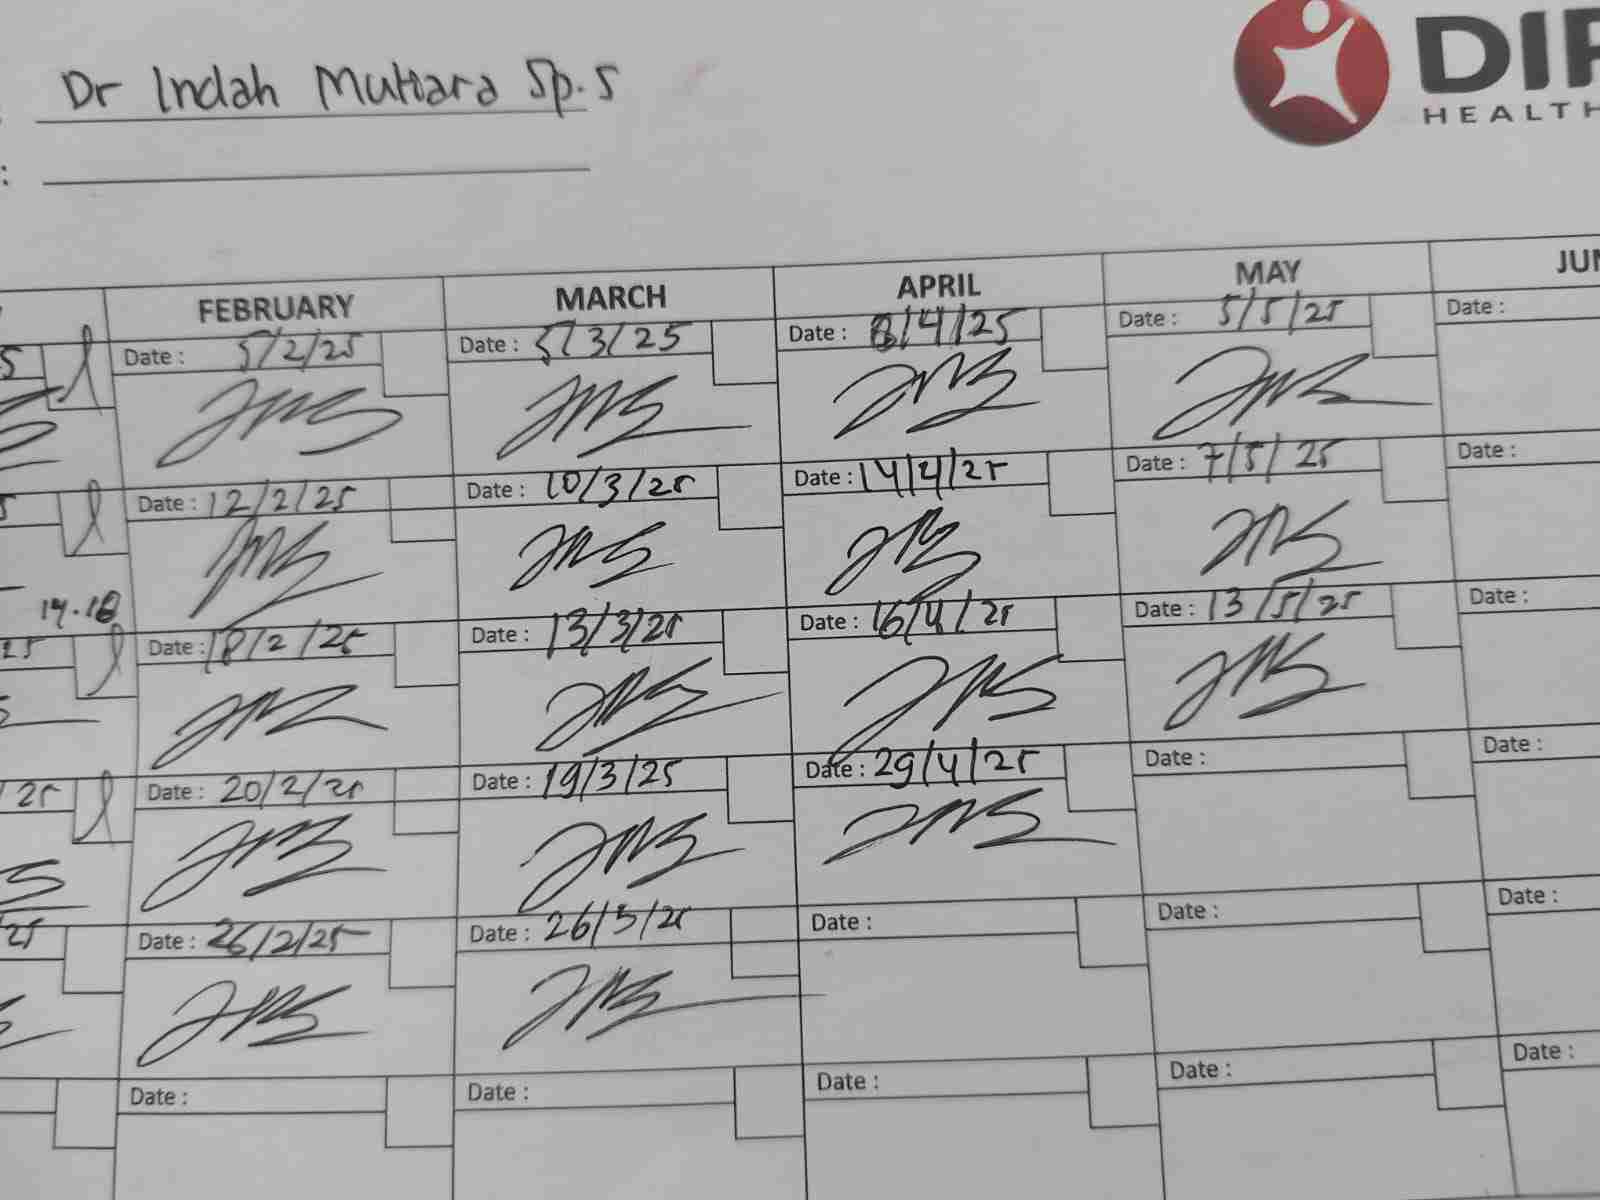 Dr Indah Mutiara Sp.S
DIP
HEALTH
:
FEBRUARY MARCH APRIL MAY JUN
Date : 5/2/25 Date : 5/3/25 Date : 8/4/25 Date : 5/5/25 Date :
Date : 12/2/25 Date : 10/3/25 Date : 14/4/25 Date : 7/5/25 Date :
14.18
25 Date : 18/2/25 Date : 13/3/25 Date : 16/4/25 Date : 13/5/25 Date :
25 Date : 20/2/25 Date : 19/3/25 Date : 29/4/25 Date : Date :
25 Date : 26/2/25 Date : 26/3/25 Date : Date : Date :
Date : Date : Date : Date : Date :